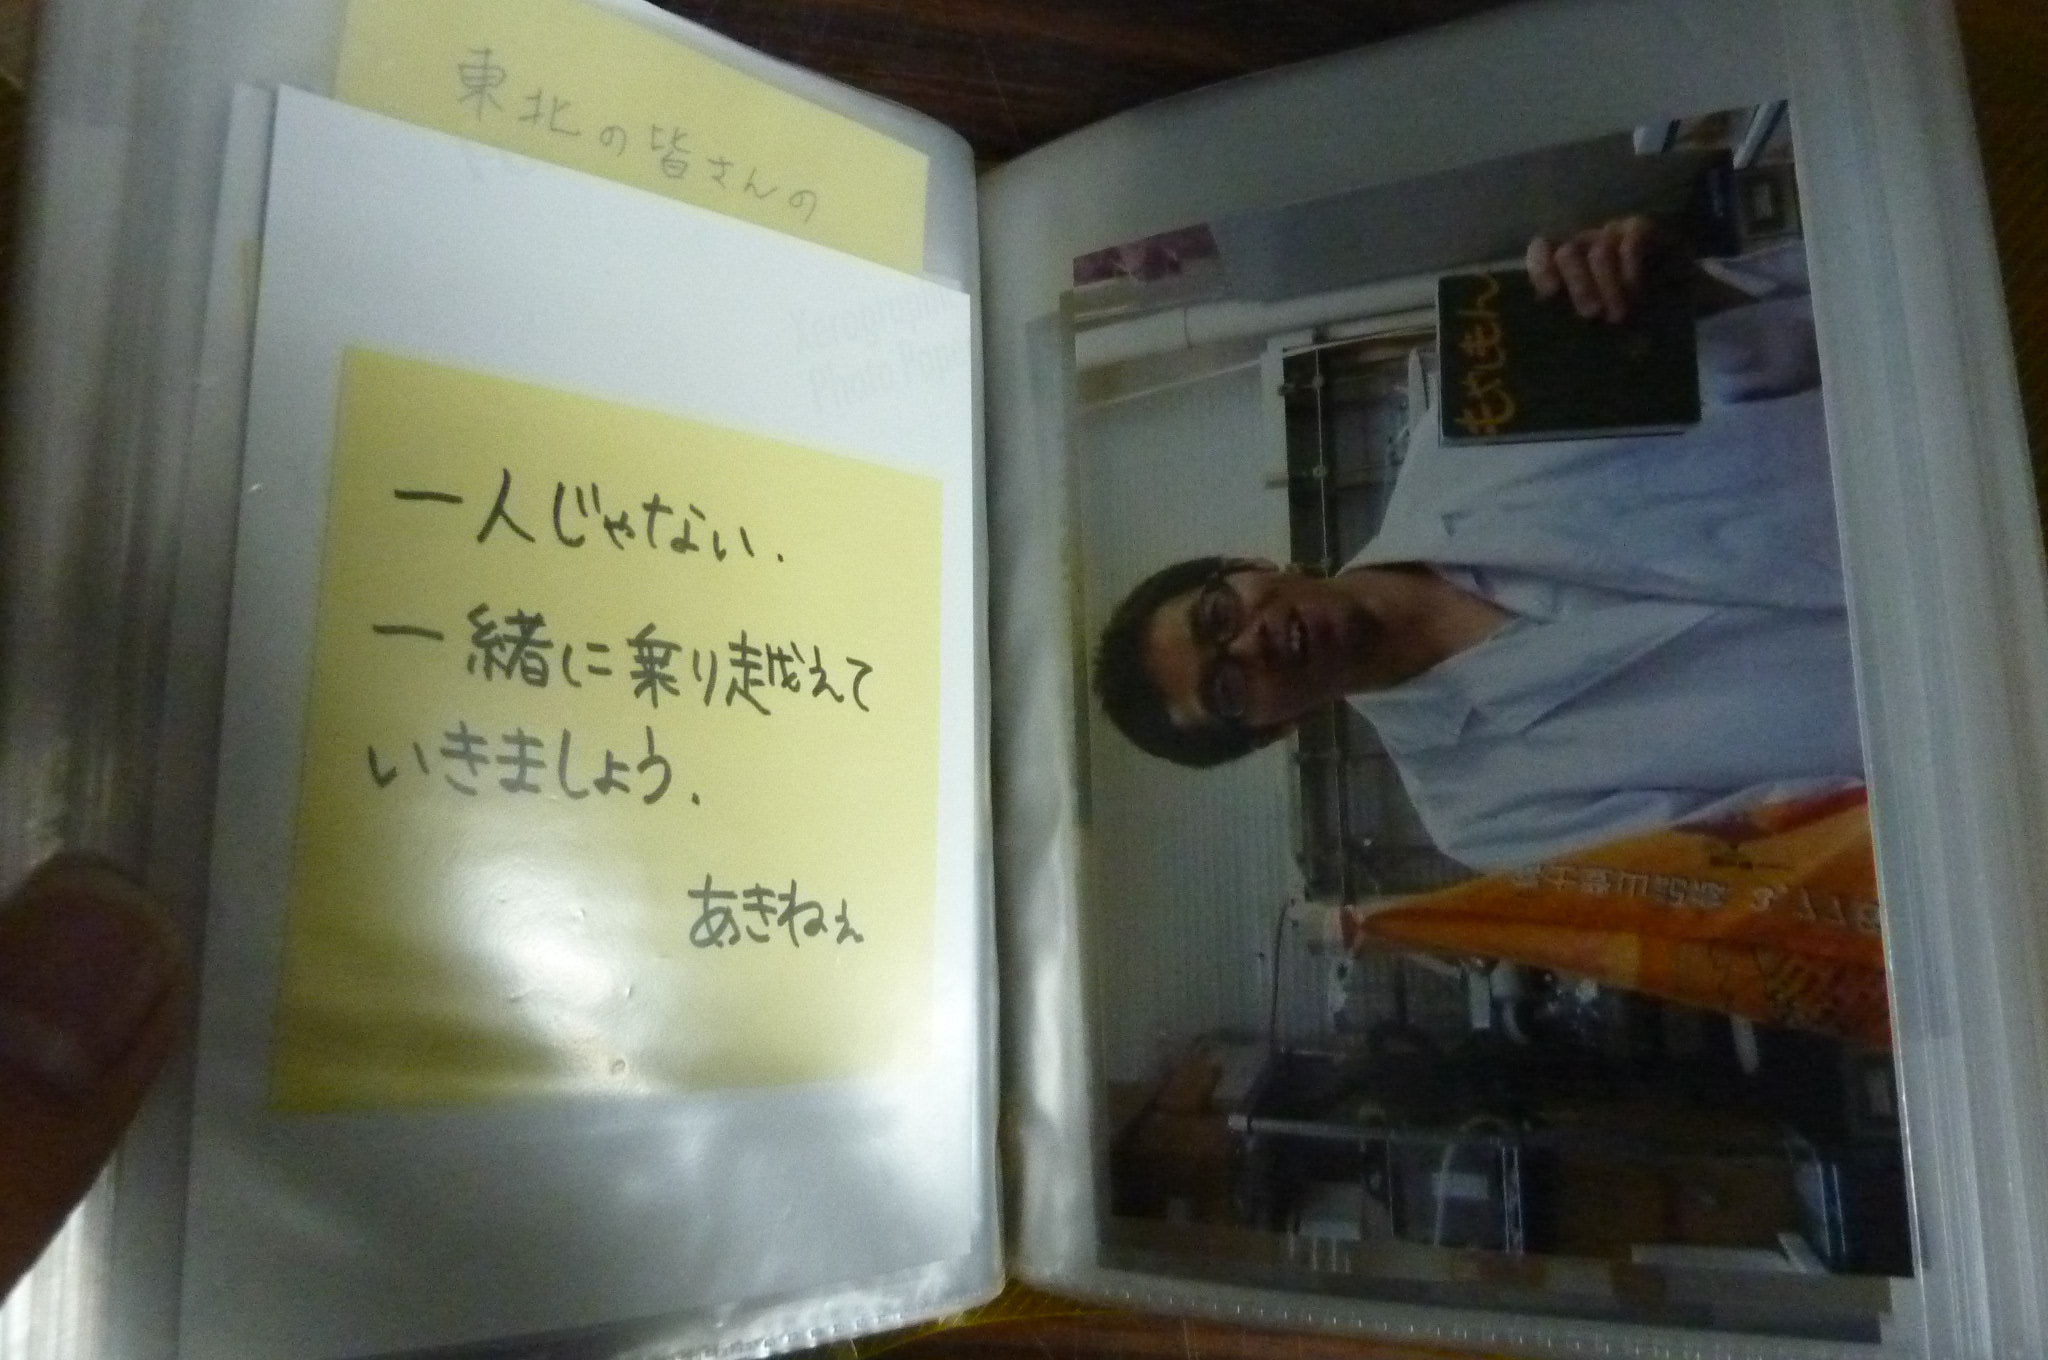 東北の皆さんの
Xerographic
Photo Paper
一人じゃない.
一緒に乗り越えて
いきましょう.
あきねぇ
もやもん